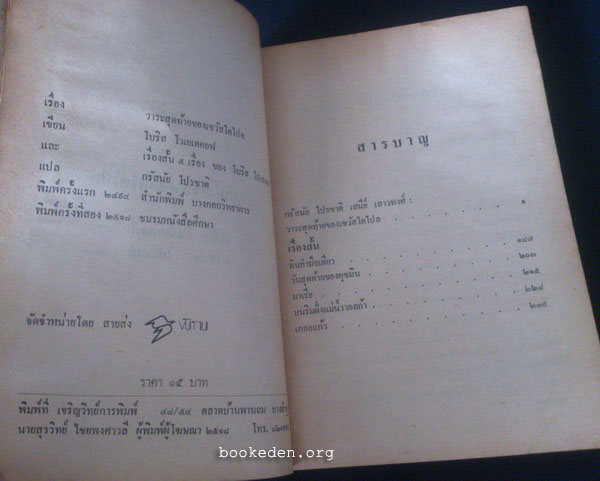 เรื่อง วาระสุดท้ายของเซวัสโตโปล
เขียน โบริส โวเยเตคอฟ
และ เรื่องสั้น ๕ เรื่อง ของ โบริส
แปล กรัสนัย โปรชาติ
พิมพ์ครั้งแรก ๒๔๙๔ สำนักพิมพ์ บางกอกวิทยาคาร
พิมพ์ครั้งที่สอง ๒๕๑๘ ชมรมหนังสือศึกษา
จัดจำหน่ายโดย สายส่ง
ราคา ๑๕ บาท
พิมพ์ที่ เจริญวิทย์การพิมพ์ ๘๘/๕๔ ตลาดบ้านพานถม
นายสุรวิทย์ ไชยพงศาวลี ผู้พิมพ์ผู้โฆษณา ๒๕๑๘ โทร.
สารบาญ
กรัสนัย โปรชาติ เสนีย์ เสาวพงศ์ :
วาระสุดท้ายของเซวัสโตโปล ๑
เรื่องสั้น
ดินกำมือเดียว ๑๘๗
วันสุดท้ายของคูซมิน ๒๐๓
มาเรีย ๒๑๕
บนริมฝั่งแม่น้ำวอลก้า ๒๒๘
เกลอแก้ว ๒๓๕
bookeden.org